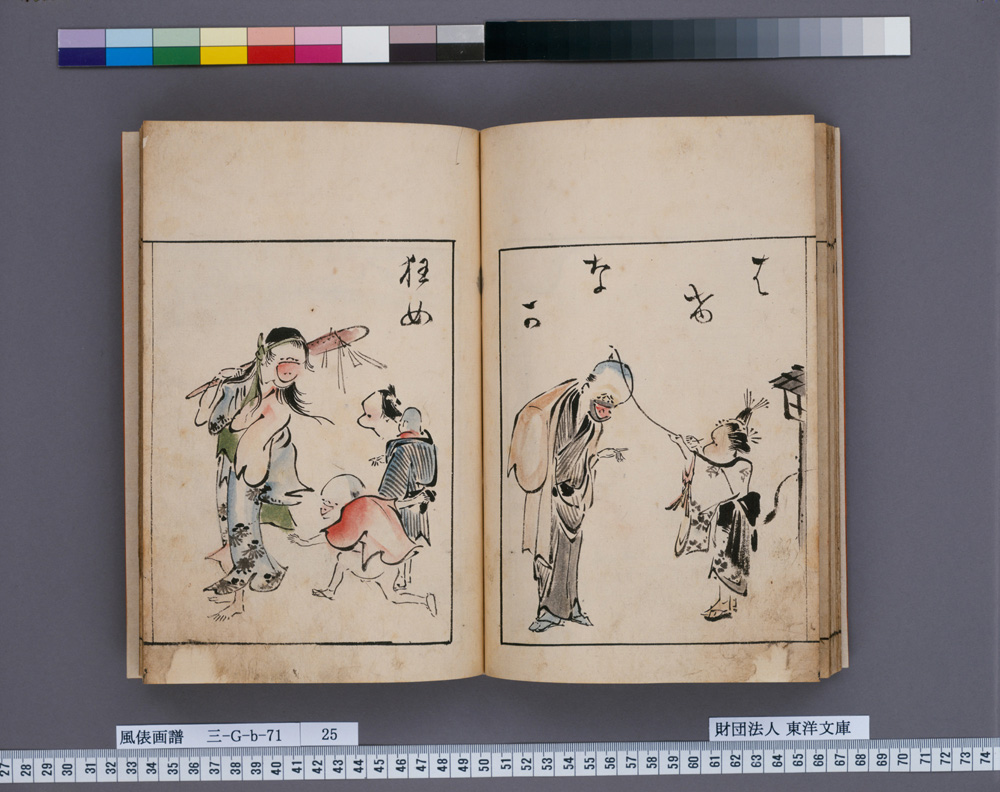 狂女
風俵画譜 三-G-b-71 25
財団法人 東洋文庫
27 28 29 30 31 32 33 34 35 36 37 38 39 40 41 42 43 44 45 46 47 48 49 50 51 52 53 54 55 56 57 58 59 60 61 62 63 64 65 66 67 68 69 70 71 72 73 74